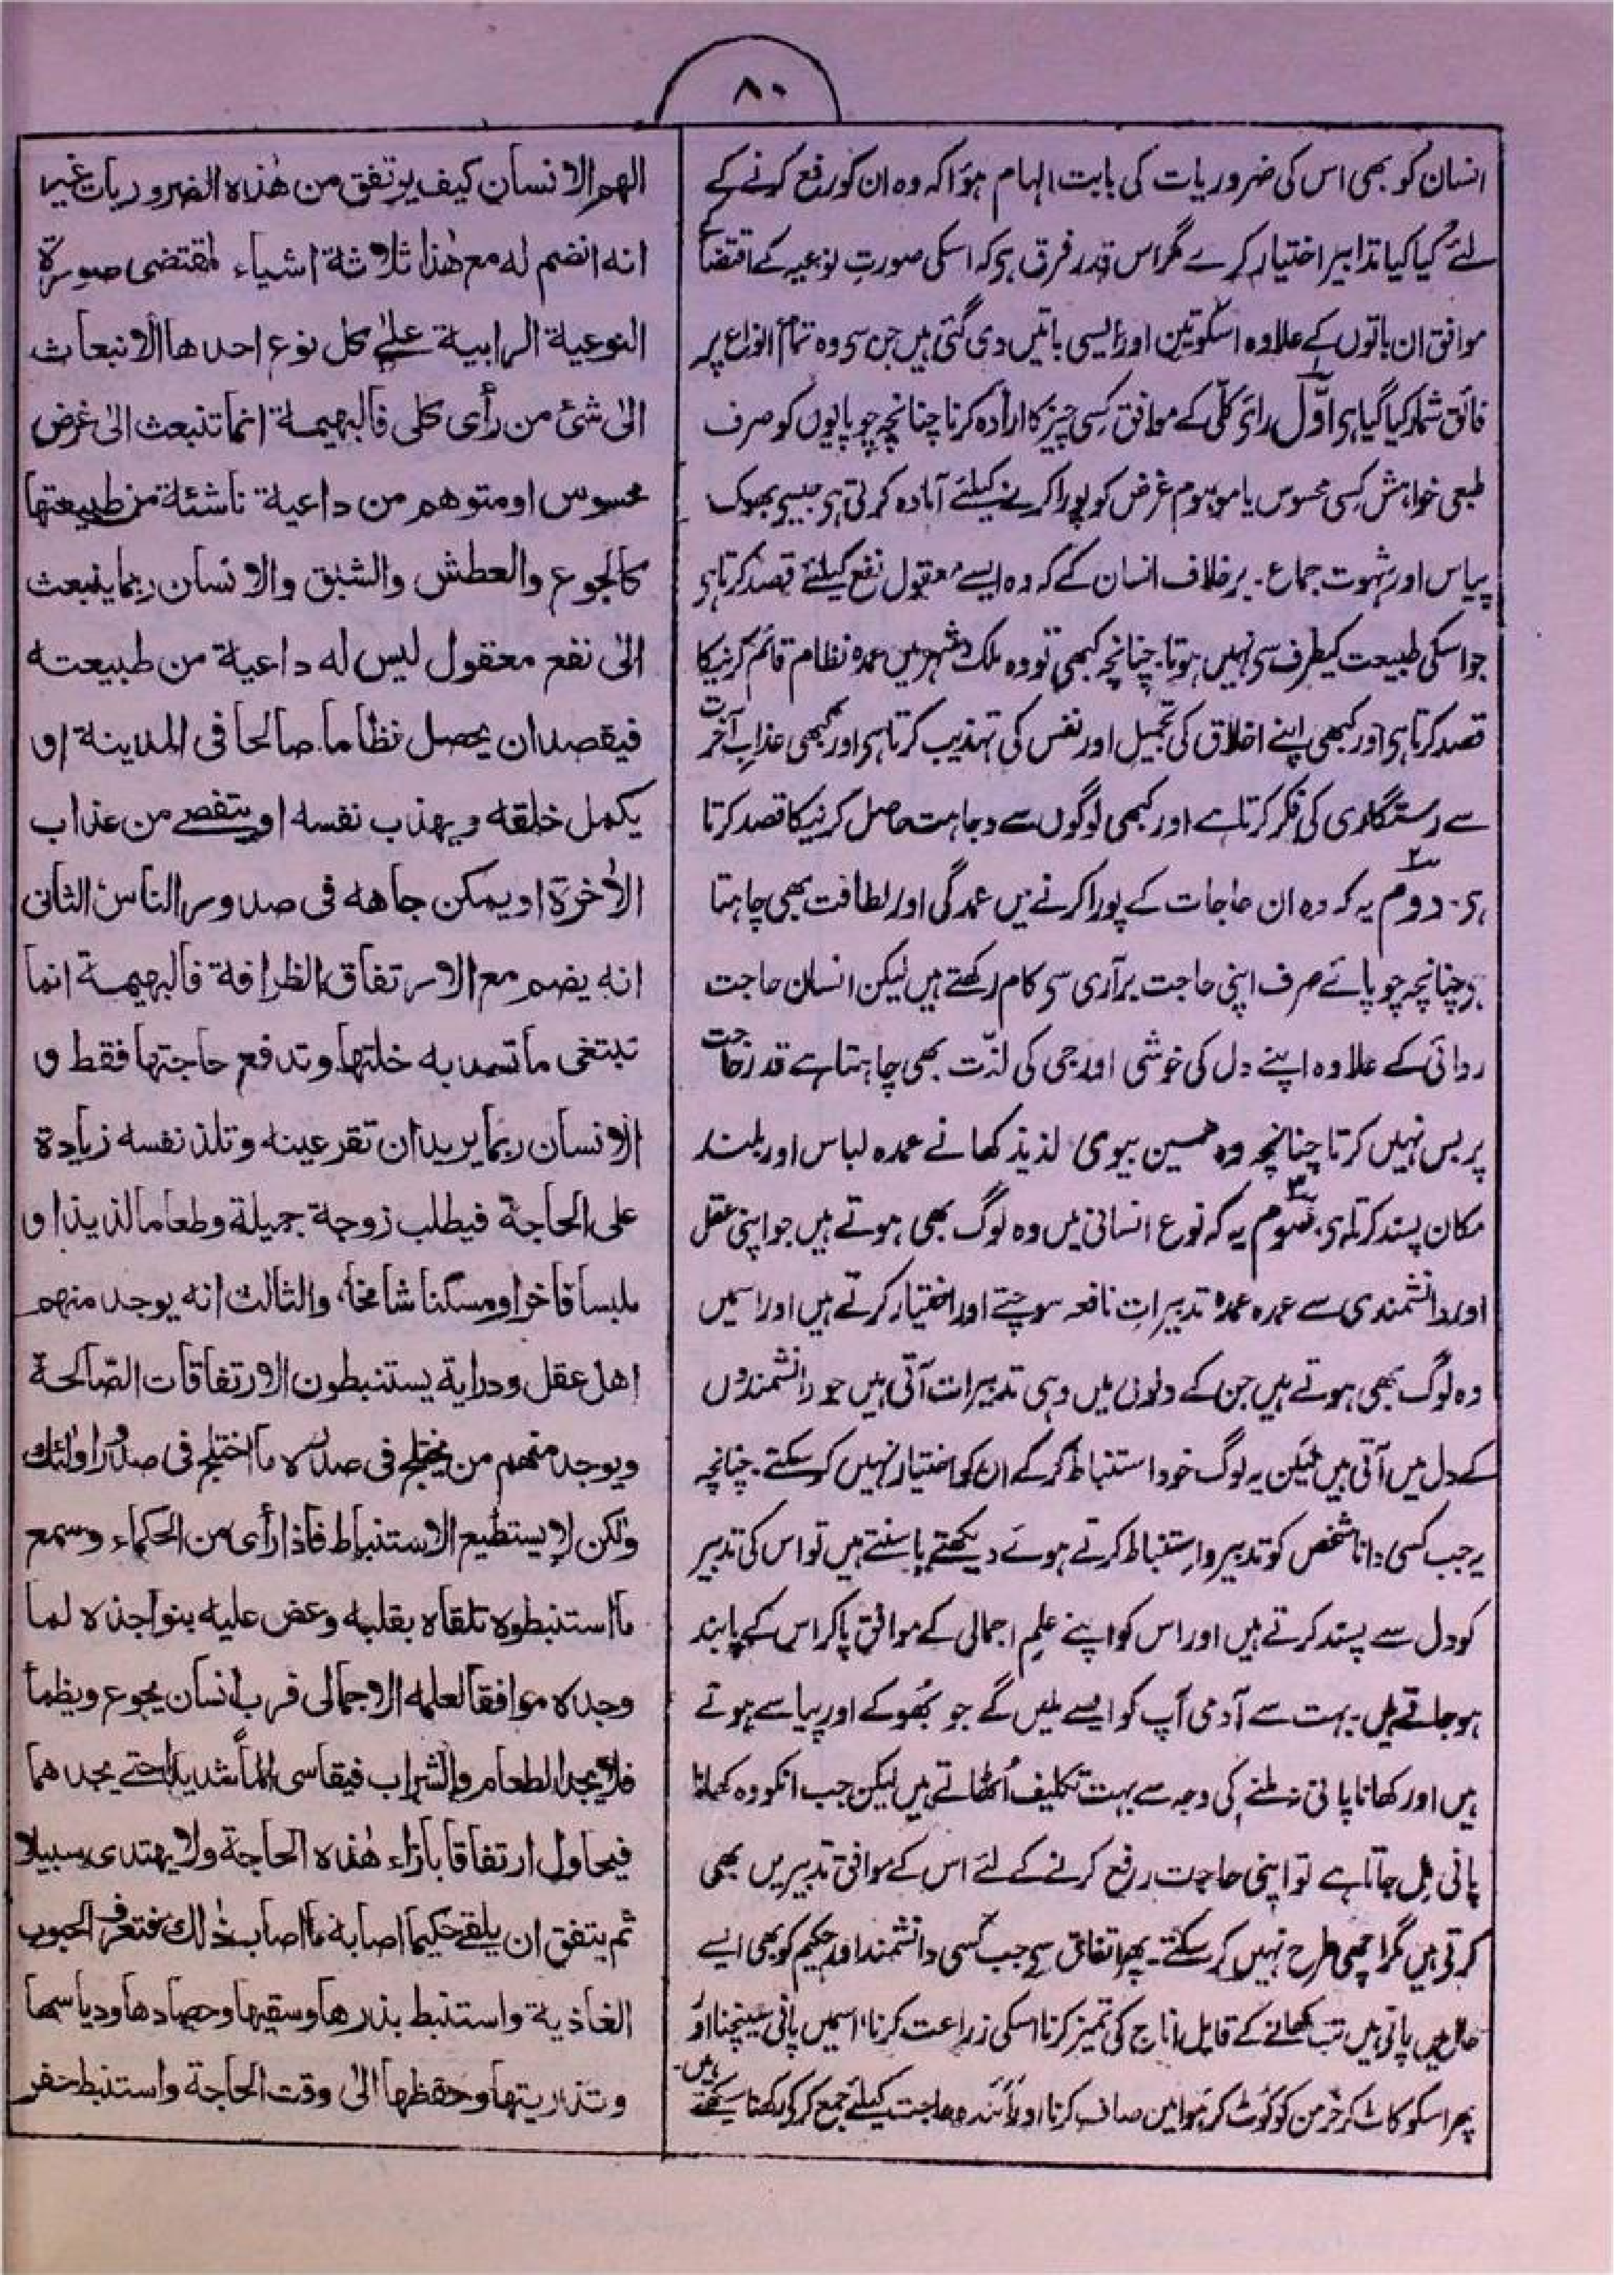 ٨٠
انسان کو بھی اس کی ضروریات کی بابت الہام ہوا کہ وہ ان کو رفع کرنے کے
لئے کیا کیا تدابیر اختیار کرے مگر اس قدر فرق ہی کہ اسکی صورت نوعیہ کے اقتضا کے
موافق ان باتوں کے علاوہ اسکو تین اور ایسی باتیں دی گئی ہیں جن سی وہ تمام انواع پر
فائق شمار کیا گیا ہی اوّل رائ کلّی کے موافق کسی چیز کا ارادہ کرنا چنانچہ چوپایوں کو صرف
طبعی خواہش کسی محسوس یا موہوم غرض کو پورا کرنے کیلئے آمادہ کرتی ہی جیسی بھوک
پیاس اور شہوت جماع۔ برخلاف انسان کے کہ وہ ایسے معقول نفع کیلئے قصد کرتا ہی
جو اسکی طبیعت کیطرف سی نہیں ہوتا۔ چنانچہ کبھی تو وہ ملک و شہر میں عمدہ نظام قائم کرنیکا
قصد کرتا ہی اور کبھی اپنے اخلاق کی تکمیل اور نفس کی تہذیب کرتا ہی اور کبھی عذاب آخرت
سے رستگاری کی فکر کرتا ہے اور کبھی لوگوں سے وجاہت حاصل کرنیکا قصد کرتا
ہی۔ دوم یہ کہ وہ ان حاجات کے پورا کرنے میں عمدگی اور لطافت بھی چاہتا
ہی چنانچہ چوپائے صرف اپنی حاجت برآری سی کام رکھتے ہیں لیکن انسان حاجت
روائی کے علاوہ اپنے دل کی خوشی اور جی کی لذّت بھی چاہتا ہے قدر حاجت
پر بس نہیں کرتا چنانچہ وہ حسین بیوی لذیذ کھانے عمدہ لباس اور بلند
مکان پسند کرتا ہی۔ سوم یہ کہ نوع انسانی میں وہ لوگ بھی ہوتے ہیں جو اپنی عقل
اور دانشمندی سے عمدہ عمدہ تدبیرات نافعہ سوچتے اور اختیار کرتے ہیں اور اسمیں
وہ لوگ بھی ہوتے ہیں جن کے دلوں میں وہی تدبیرات آتی ہیں جو دانشمندوں
کے دل میں آتی ہیں لیکن یہ لوگ خود استنباط کر کے ان کو اختیار نہیں کر سکتے۔ چنانچہ
یہ جب کسی دانا شخص کو تدبیر و استنباط کرتے ہوئے دیکھتے یا سنتے ہیں تو اس کی تدبیر
کو دل سے پسند کرتے ہیں اور اس کو اپنے علم اجمالی کے موافق پا کر اس کے پابند
ہو جاتے ہیں۔ بہت سے آدمی آپ کو ایسے ملیں گے جو بھوکے اور پیاسے ہوتے
ہیں اور کھانا پانی نہ ملنے کی وجہ سے بہت تکلیف اُٹھاتے ہیں لیکن جب انکو وہ کھانا
پانی مل جاتا ہے تو اپنی حاجت رفع کرنے کے لئے اس کے موافق تدبیریں بھی
کرتی ہیں مگر اچھی طرح نہیں کر سکتے۔ پھر اتفاق سی جب کسی دانشمند اور حکیم کو بھی ایسے
حال میں پاتی ہیں تب کھانے کے قابل اناج کی تمیز کرنا اسکی زراعت کرنا، اسمیں پانی سینچنا اور
پھر اسکو کاٹ کر خرمن کو کوٹ کر ہوا میں صاف کرنا اور آئندہ حاجت کیلئے جمع کر کر رکھنا سیکھتے ہیں۔
الهم الانسان كيف يرتفق من هٰذه الضروريات غير
انه انضم له مع هٰذا ثلاثة اشياء لمقتضى صورة
النوعية الرابية علىٰ كل نوع احدها الانبعاث
الىٰ شئ من رأى كلى فالبهيمة انما تنبعث الىٰ غرض
محسوس او متوهم من داعية ناشئة من طبيعتها
كالجوع والعطش والشبق والانسان ربما ينبعث
الىٰ نفع معقول ليس له داعية من طبيعته
فيقصد ان يحصل نظاما صالحا فى المدينة او
يكمل خلقه ويهذب نفسه او يتفصے من عذاب
الأخرة او يمكن جاهه فى صدور الناس الثانى
انه يضم مع الارتفاق الظرافة فالبهيمة انما
تبتغى ما تسد به خلتها وتدفع حاجتها فقط و
الانسان ربما يريد ان تقر عينه وتلذ نفسه زيادة
على الحاجة فيطلب زوجة جميلة وطعاما لذيذا و
ملبسا فاخرا ومسكنا شامخا، والثالث انه يوجد منهم
اهل عقل ودراية يستنبطون الارتفاقات الصّالحة
ويوجد منهم من يختلج فى صدره ما اختلج فى صدر اولٰئك
ولكن لا يستطيع الاستنباط فاذا رأى من الحكماء وسمع
ما استنبطوه تلقاه بقلبه وعض عليه بنواجذه لما
وجده موافقا لعلمه الاجمالى فرب انسان يجوع ويظمأ
فلا يجد الطعام والشراب فيقاسى الما شديدا حتے يجدهما
فيحاول ارتفاقا بازاء هٰذه الحاجة ولا يهتدى سبيلا
ثم يتفق ان يلقے حكيما اصابه ما اصاب ذٰلك فتعرف الحبوب
الغاذية واستنبط بذرها وسقيها وحصادها ودياسها
وتذريتها وحفظها الىٰ وقت الحاجة واستنبط حفر